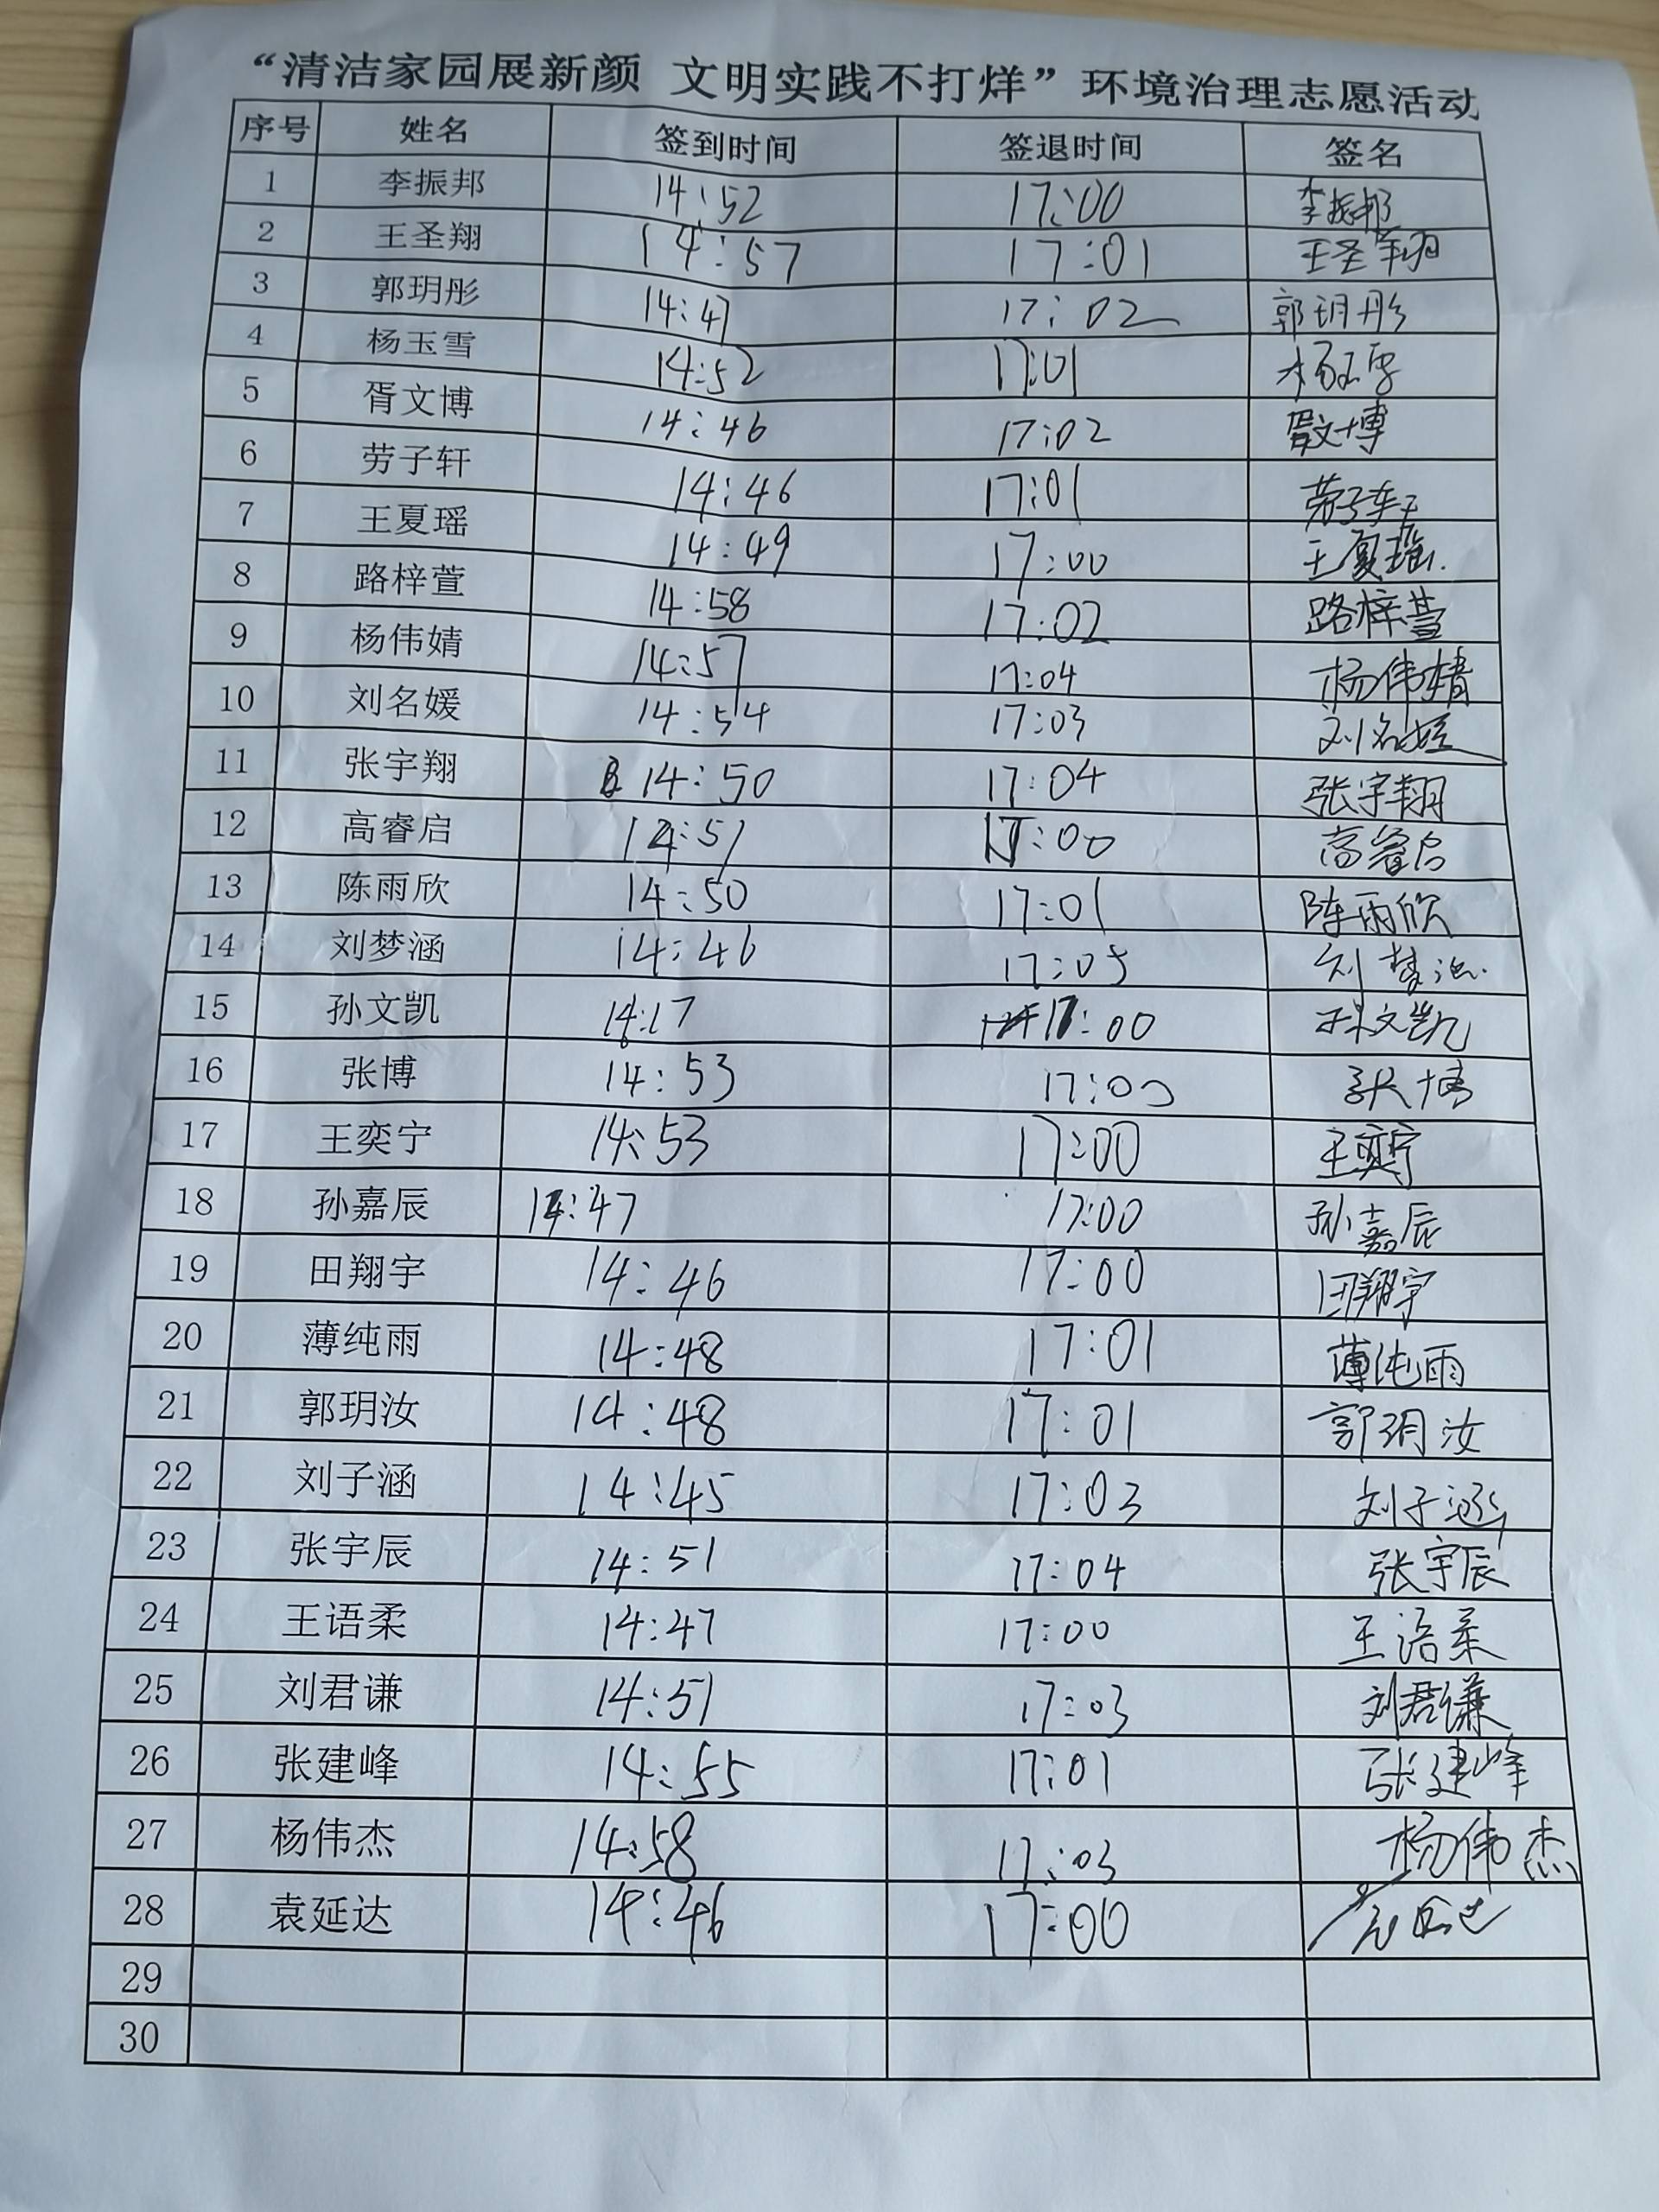 “清洁家园展新颜 文明实践不打烊”环境治理志愿活动
序号 姓名 签到时间 签退时间 签名
1 李振邦 14:52 17:00 李振邦
2 王圣翔 14:57 17:01 王圣翔
3 郭玥彤 14:47 17:02 郭玥彤
4 杨玉雪 14:52 17:01 杨玉雪
5 胥文博 14:46 17:02 胥文博
6 劳子轩 14:46 17:01 劳子轩
7 王夏瑶 14:49 17:00 王夏瑶
8 路梓萱 14:58 17:02 路梓萱
9 杨伟婧 14:57 17:04 杨伟婧
10 刘名媛 14:54 17:03 刘名媛
11 张宇翔 14:50 17:04 张宇翔
12 高睿启 14:51 17:00 高睿启
13 陈雨欣 14:50 17:01 陈雨欣
14 刘梦涵 14:46 17:05 刘梦涵
15 孙文凯 17:00 孙文凯
16 张博 14:53 17:00 张博
17 王奕宁 14:53 17:00 王奕宁
18 孙嘉辰 14:47 17:00 孙嘉辰
19 田翔宇 14:46 17:00 田翔宇
20 薄纯雨 14:48 17:01 薄纯雨
21 郭玥汝 14:48 17:01 郭玥汝
22 刘子涵 14:45 17:03 刘子涵
23 张宇辰 14:51 17:04 张宇辰
24 王语柔 14:47 17:00 王语柔
25 刘君谦 14:51 17:03 刘君谦
26 张建峰 14:55 17:01 张建峰
27 杨伟杰 14:58 17:03 杨伟杰
28 袁延达 14:46 17:00 袁延达
29
30